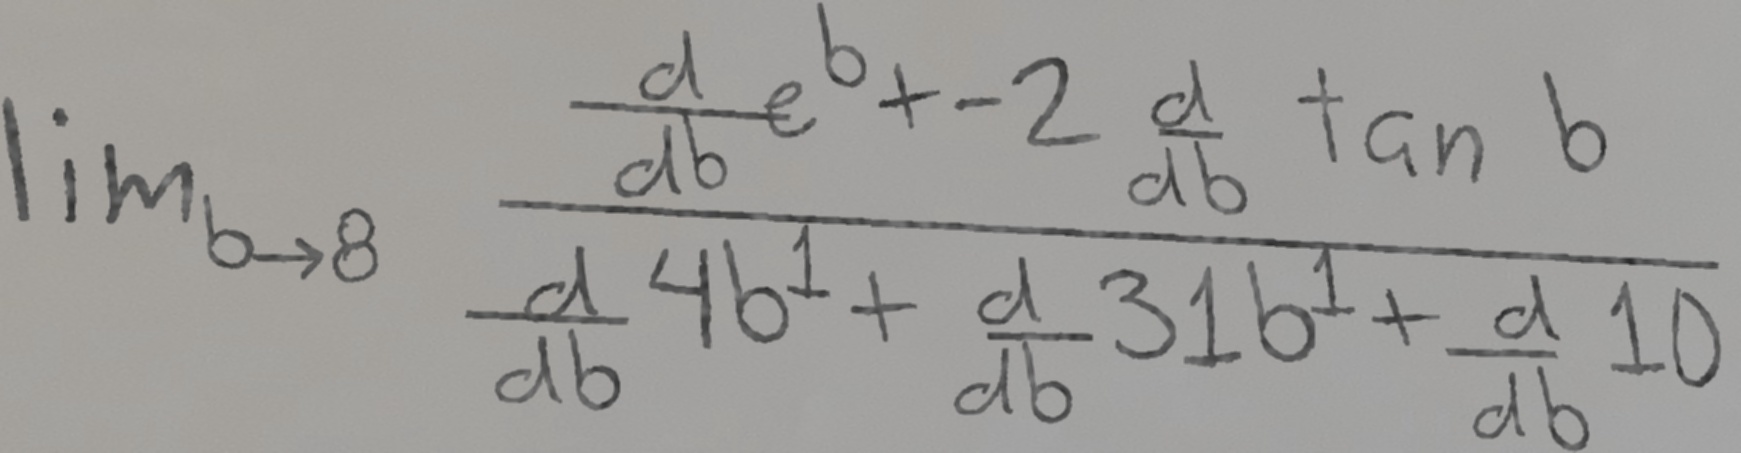 \lim_{b \to 8} \frac{\frac{d}{db} e^b + -2 \frac{d}{db} \tan b}{\frac{d}{db} 4b^1 + \frac{d}{db} 31b^1 + \frac{d}{db} 10}